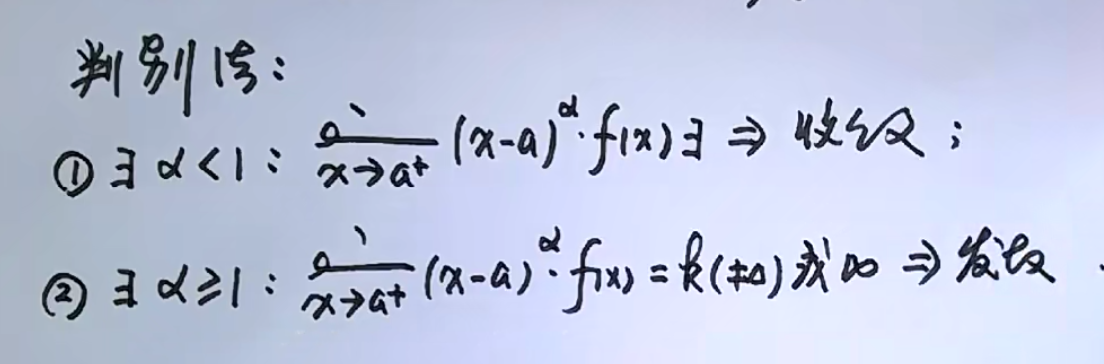 判别法:
① ∃ α<1: lim x→a⁺ (x-a)^α·f(x) ∃ ⇒ 收敛;
② ∃ α≥1: lim x→a⁺ (x-a)^α·f(x) = k(≠0)或∞ ⇒ 发散.